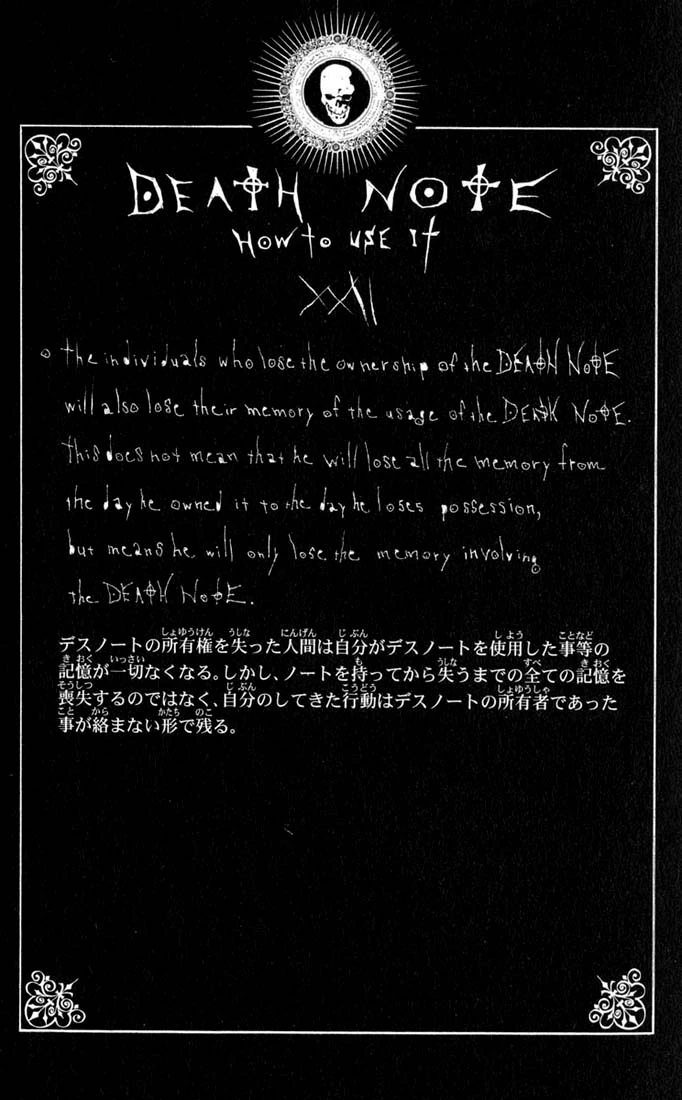 DEATH NOTE
HOW to USE It
XXII
The individuals who lose the ownership of the DEATH NOTE
will also lose their memory of the usage of the DEATH NOTE.
This does not mean that he will lose all the memory from
the day he owned it to the day he loses possession,
but means he will only lose the memory involving
the DEATH NOTE.
デスノートの所有権を失った人間は自分がデスノートを使用した事等の
記憶が一切なくなる。しかし、ノートを持ってから失うまでの全ての記憶を
喪失するのではなく、自分のしてきた行動はデスノートの所有者であった
事が絡まない形で残る。